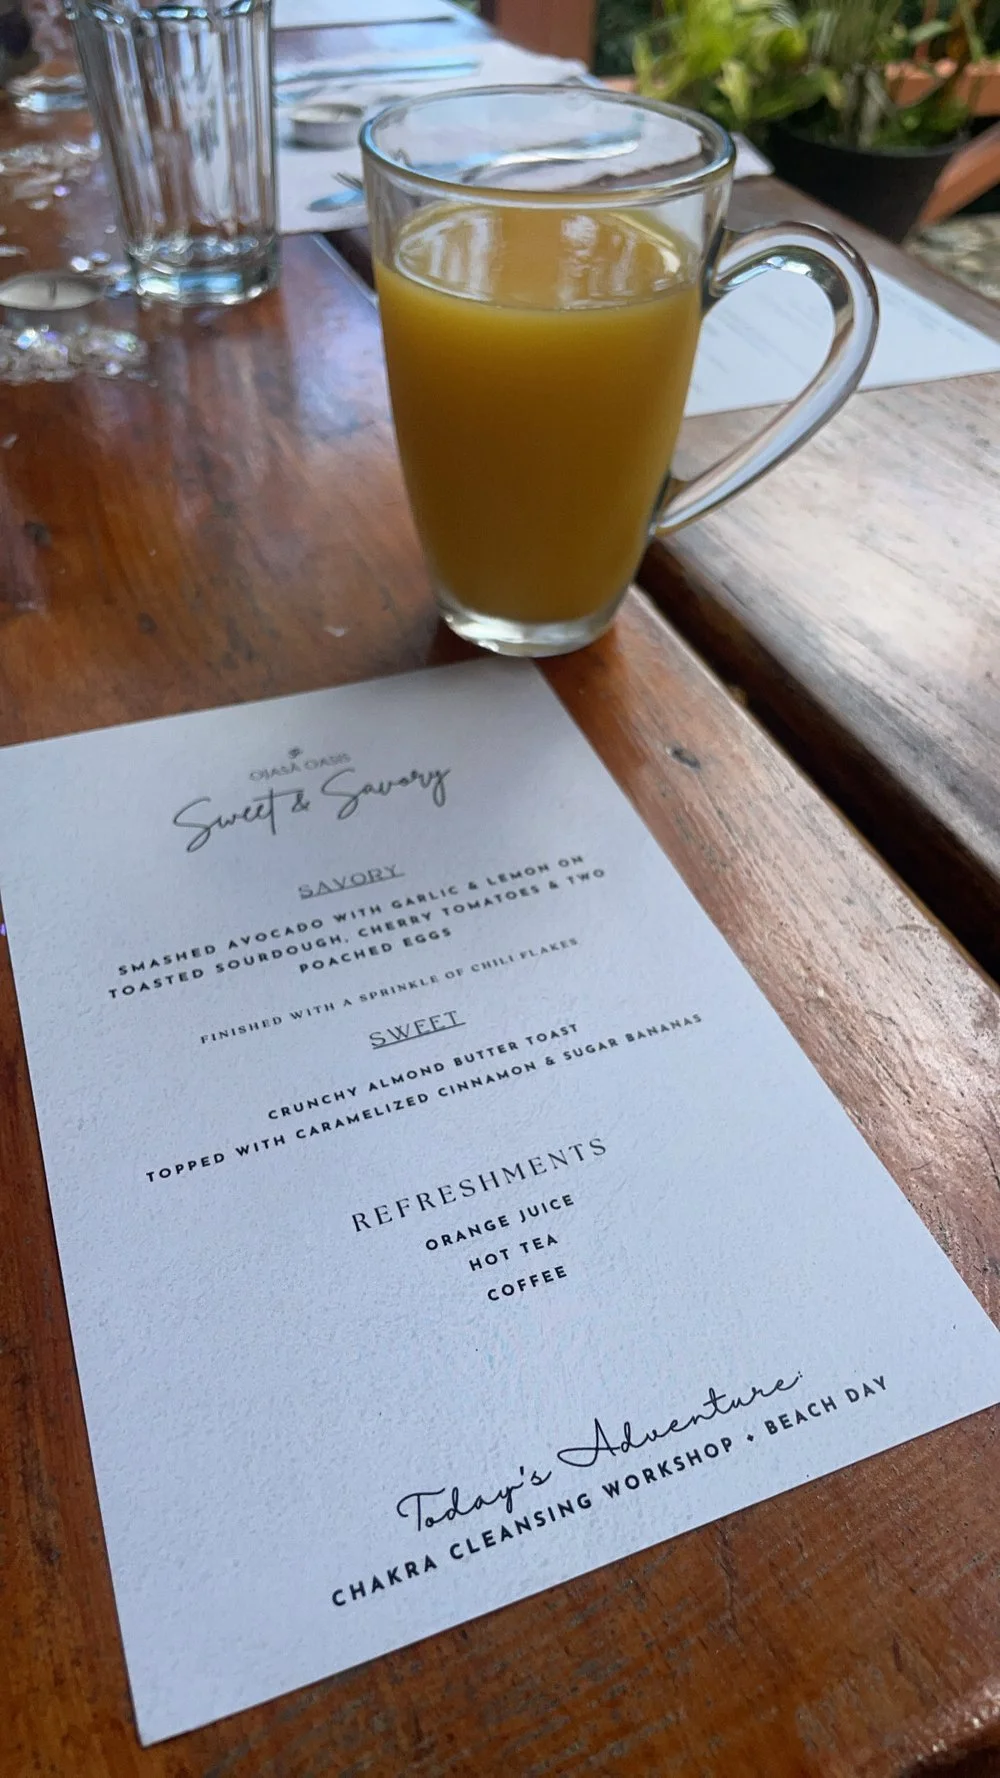 OJASA OASIS
Sweet & Savory
SAVORY
SMASHED AVOCADO WITH GARLIC & LEMON ON
TOASTED SOURDOUGH, CHERRY TOMATOES & TWO
POACHED EGGS
FINISHED WITH A SPRINKLE OF CHILI FLAKES
SWEET
CRUNCHY ALMOND BUTTER TOAST
TOPPED WITH CARAMELIZED CINNAMON & SUGAR BANANAS
REFRESHMENTS
ORANGE JUICE
HOT TEA
COFFEE
Today's Adventure:
CHAKRA CLEANSING WORKSHOP + BEACH DAY